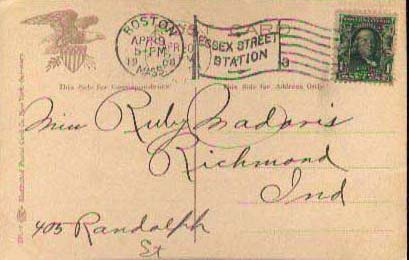 POST CARD
BOSTON
APR 9
5-PM
1908
MASS
ESSEX STREET
STATION
This Side for Correspondence
This Side for Address Only
Miss Ruby Madaris
Richmond
Ind
405 Randolph
St